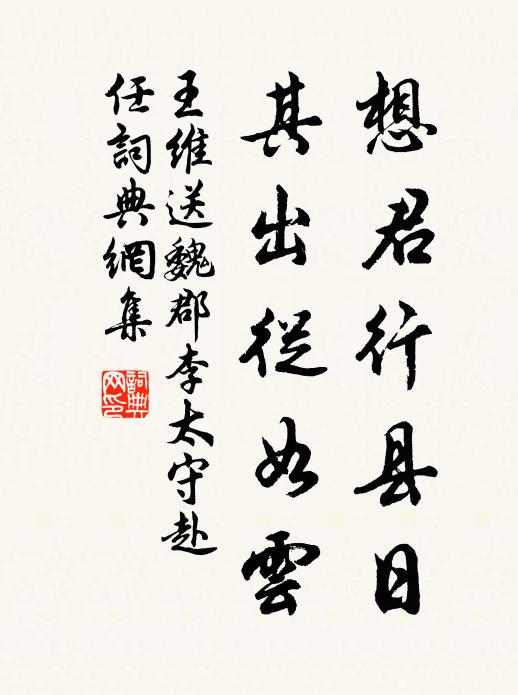 想君行县日
其出從如雲
王維送魏郡李太守赴
任詞典網集
詞典
网印